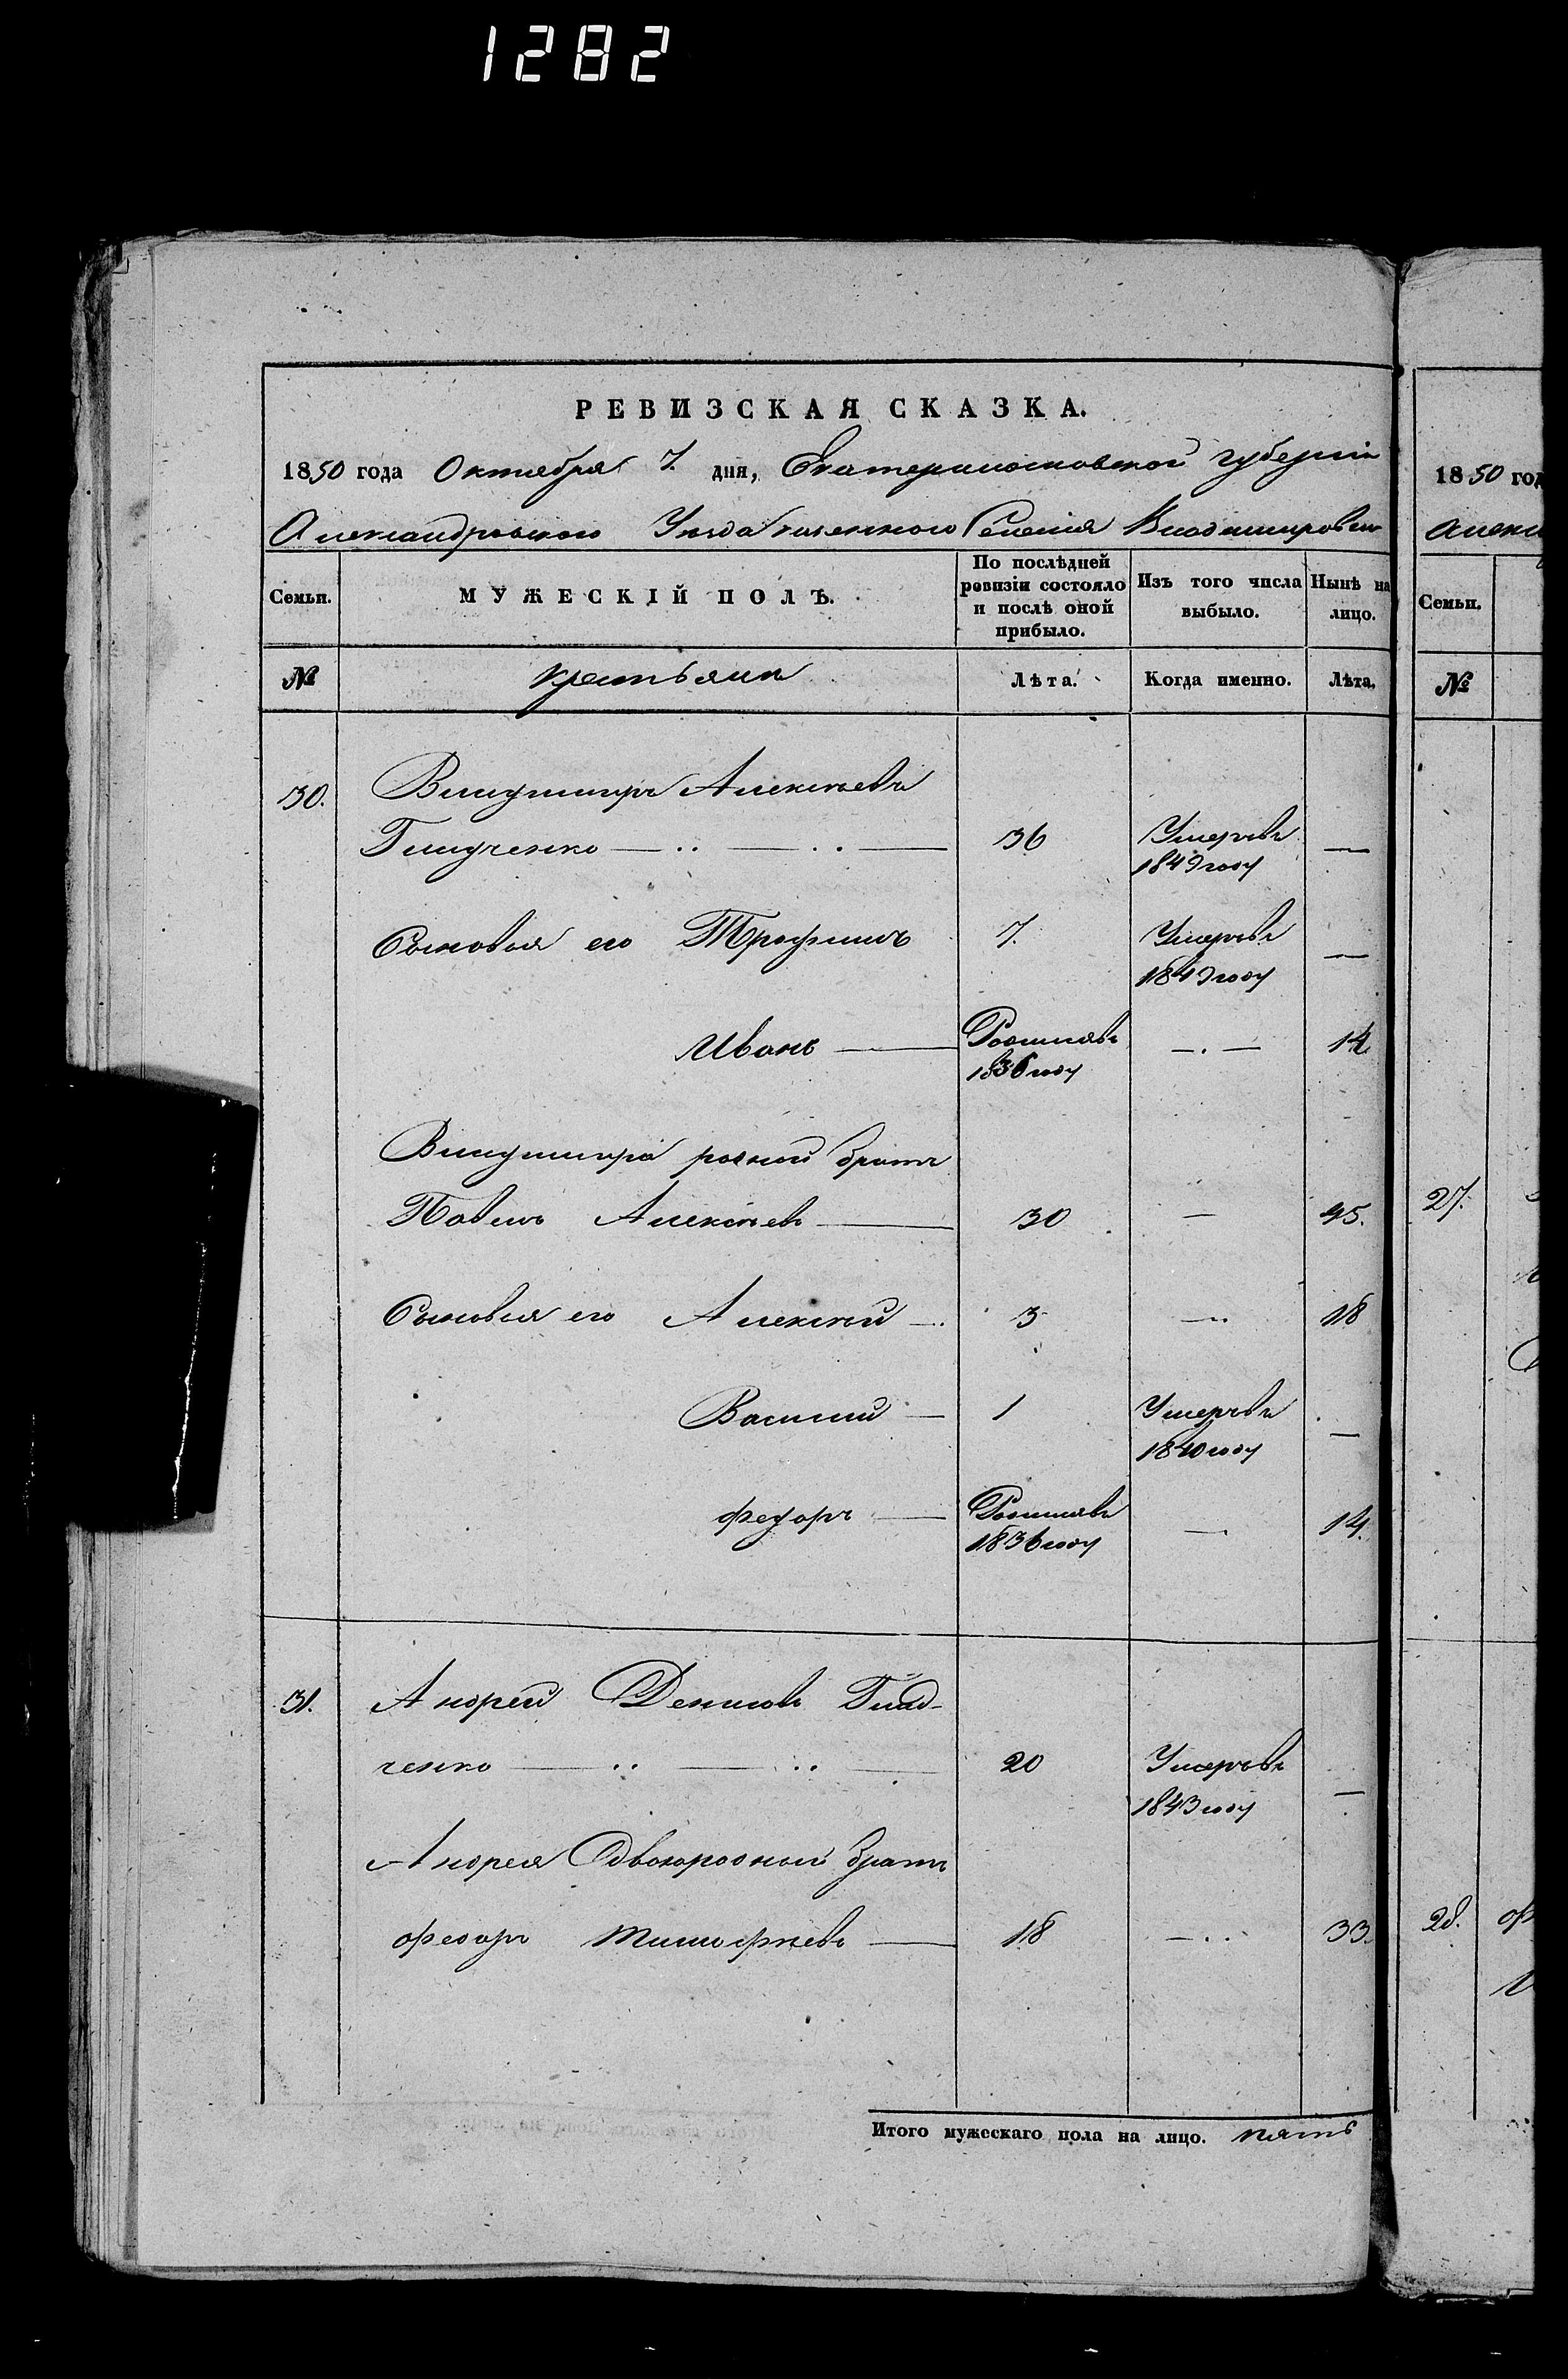 1282
РЕВИЗСКАЯ СКАЗКА.
1850 года Октября 7. дня, Екатеринославской губернии
Александровского Уезда казенного Селения
Семьи. МУЖЕСКІЙ ПОЛЪ. По послѣдней ревизіи состояло и послѣ оной прибыло. Изъ того числа выбыло. Нынѣ на лицо.
№ крестьяне Лѣта. Когда именно. Лѣта.
30. Алексѣевъ
36 Умеръ въ 1849 году —
Сыновья его Трофимъ 7. Умеръ въ 1849 году —
Иванъ — Родился въ 1836 году —.— 14
родной братъ
Павелъ Алексѣевъ — 30 — 45.
Сыновья его Алексѣй —. 3 —.. 18
Василий — 1 Умеръ въ 1840 году —
Федоръ — Родился въ 1836 году — 14.
31. Андрей Денисовъ Глад-
ченко — .. — .. — 20 Умеръ въ 1843 году —
Андрея Двоюродной братъ
Федоръ Тимофѣевъ — 18 —... 33.
Итого мужескаго пола на лицо. пять
1850 год
Алекс
Семьи.
№
27.
28.